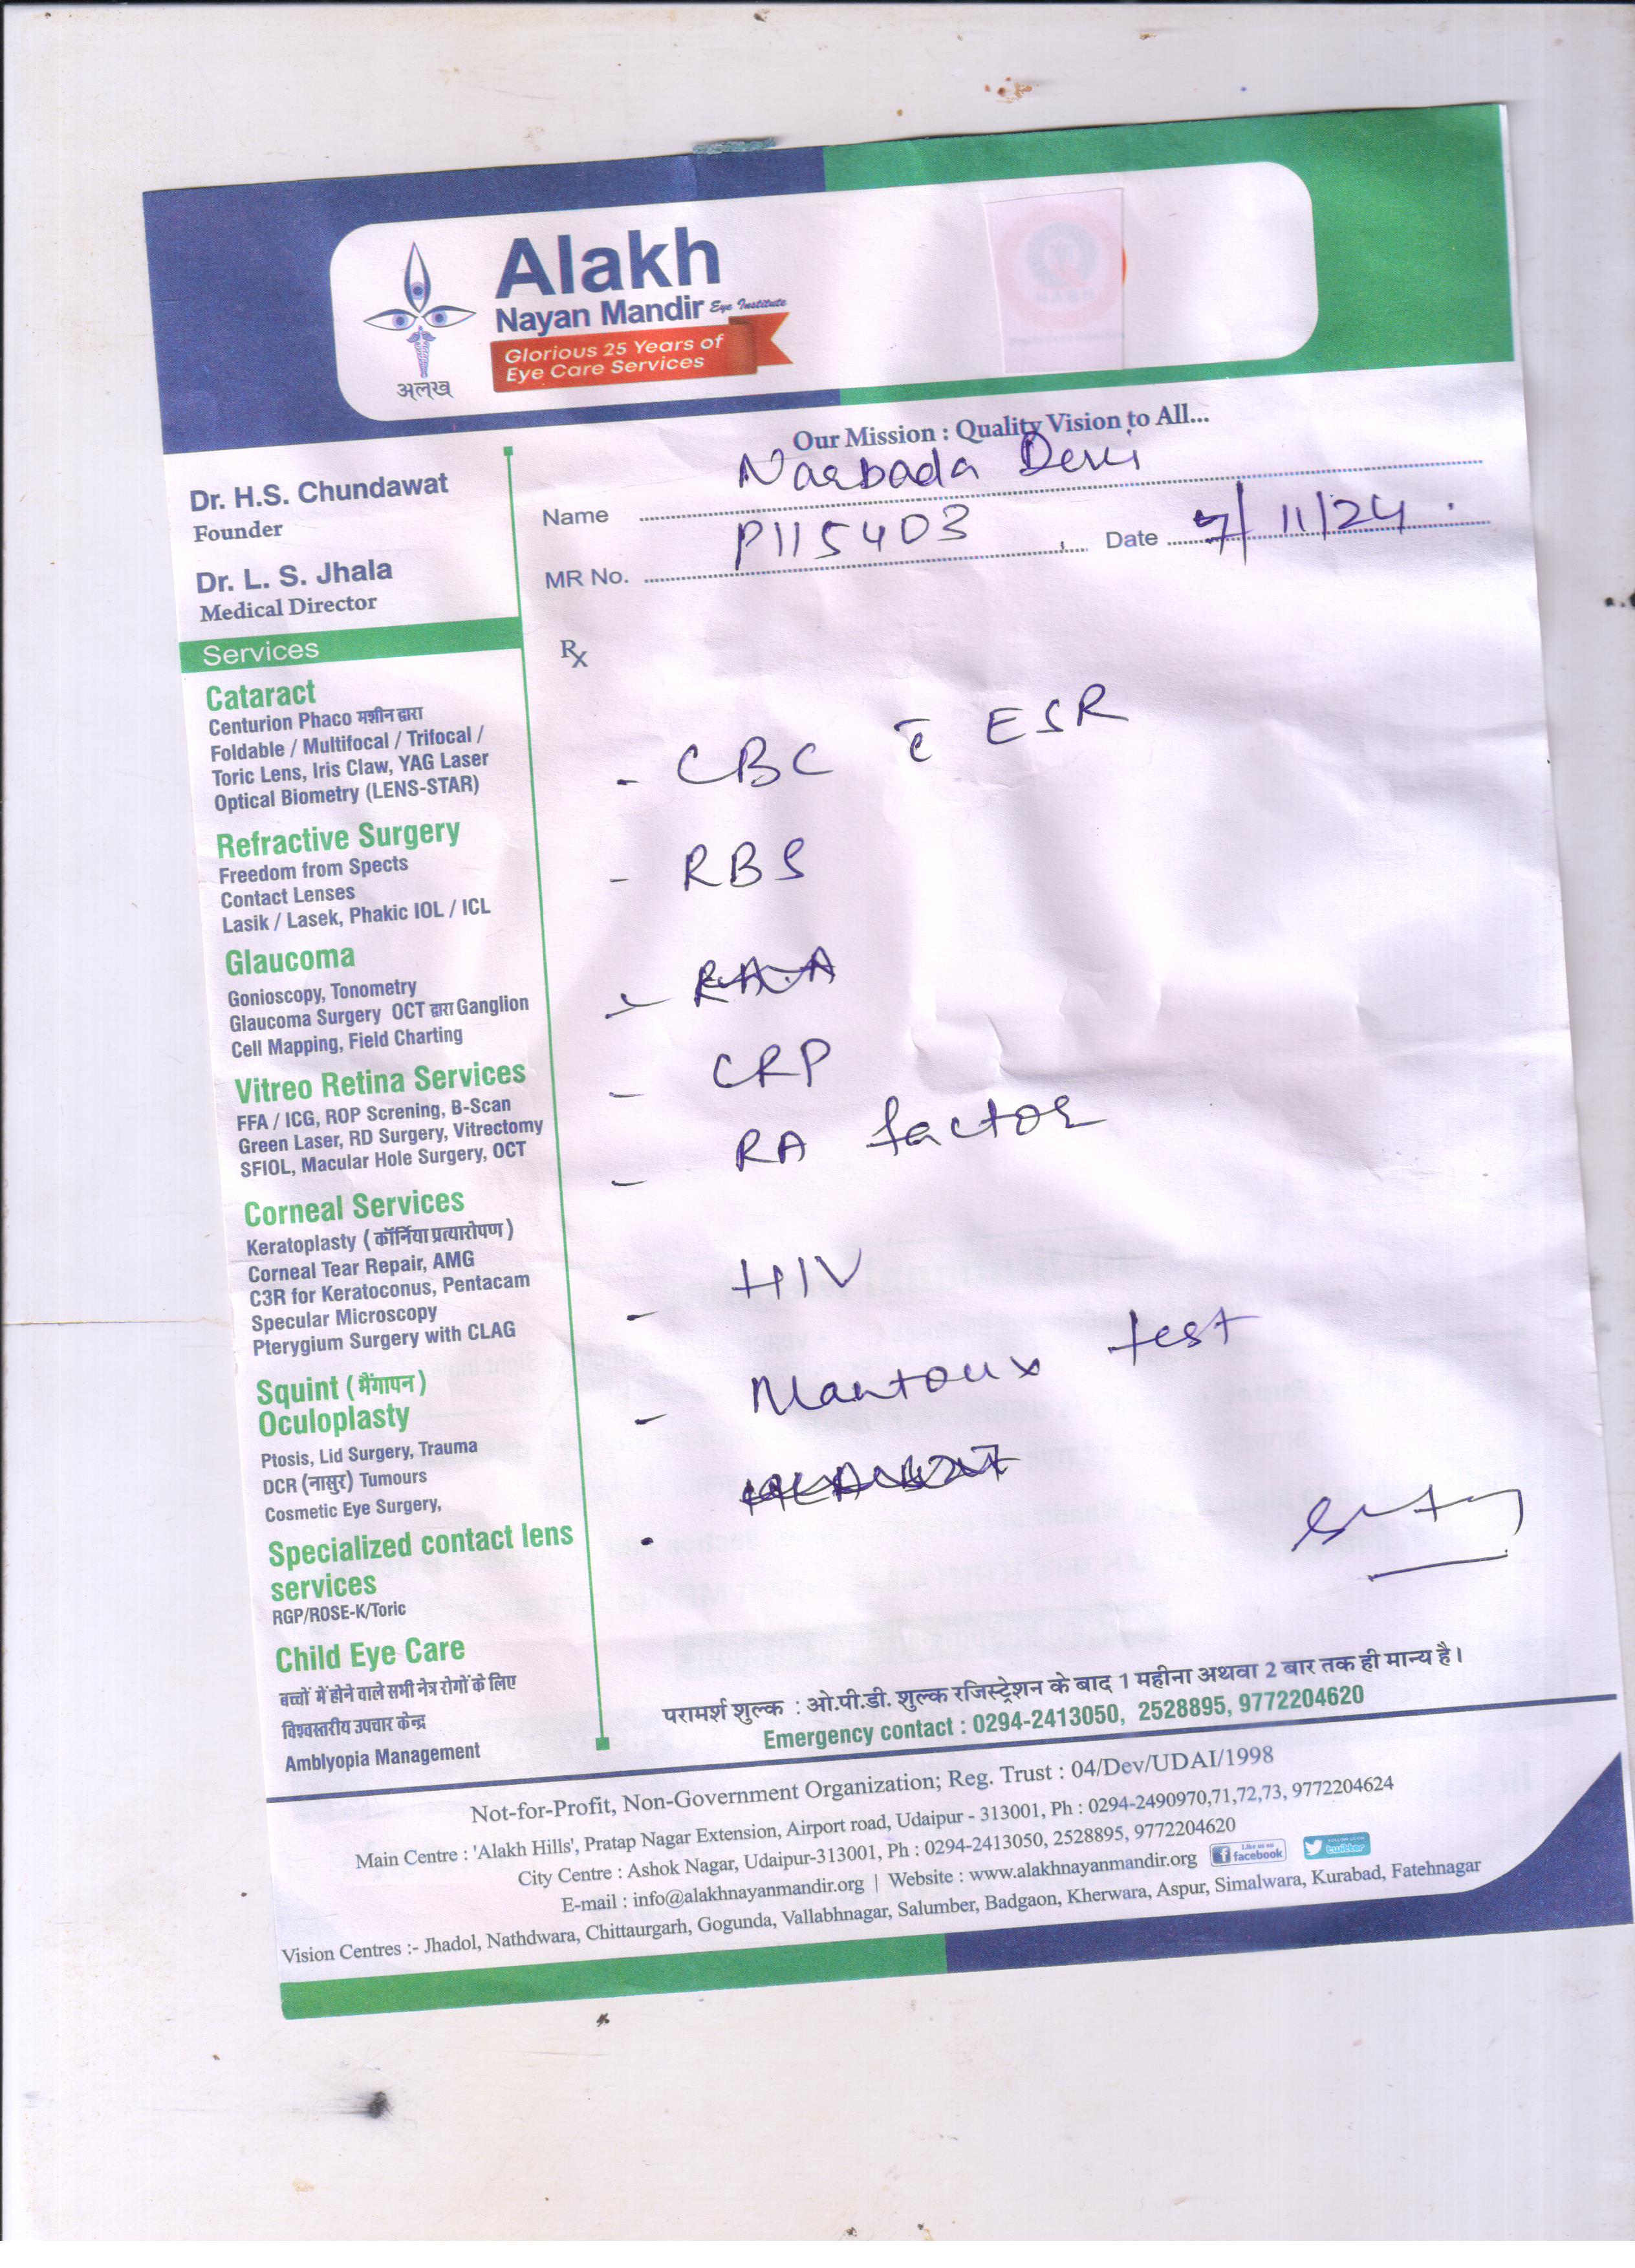 Alakh
Nayan Mandir Eye Institute
Glorious 25 Years of
Eye Care Services
अलख
Our Mission : Quality Vision to All...
Dr. H.S. Chundawat
Founder
Dr. L. S. Jhala
Medical Director
Name Narbada Devi
MR No. P115403 Date 7/11/24
Services
Cataract
Centurion Phaco मशीन द्वारा
Foldable / Multifocal / Trifocal /
Toric Lens, Iris Claw, YAG Laser
Optical Biometry (LENS-STAR)
Refractive Surgery
Freedom from Spects
Contact Lenses
Lasik / Lasek, Phakic IOL / ICL
Glaucoma
Gonioscopy, Tonometry
Glaucoma Surgery OCT द्वारा Ganglion
Cell Mapping, Field Charting
Vitreo Retina Services
FFA / ICG, ROP Screning, B-Scan
Green Laser, RD Surgery, Vitrectomy
SFIOL, Macular Hole Surgery, OCT
Corneal Services
Keratoplasty ( कॉर्निया प्रत्यारोपण )
Corneal Tear Repair, AMG
C3R for Keratoconus, Pentacam
Specular Microscopy
Pterygium Surgery with CLAG
Squint ( भैंगापन )
Oculoplasty
Ptosis, Lid Surgery, Trauma
DCR (नासुर) Tumours
Cosmetic Eye Surgery,
Specialized contact lens
services
RGP/ROSE-K/Toric
Child Eye Care
बच्चों में होने वाले सभी नेत्र रोगों के लिए
विश्वस्तरीय उपचार केन्द्र
Amblyopia Management
Rx
- CBC c̄ ESR
- RBS
- CRP
- RA factor
- HIV
- Mantoux test
परामर्श शुल्क : ओ.पी.डी. शुल्क रजिस्ट्रेशन के बाद 1 महीना अथवा 2 बार तक ही मान्य है।
Emergency contact : 0294-2413050, 2528895, 9772204620
Not-for-Profit, Non-Government Organization; Reg. Trust : 04/Dev/UDAI/1998
Main Centre : 'Alakh Hills', Pratap Nagar Extension, Airport road, Udaipur - 313001, Ph : 0294-2490970,71,72,73, 9772204624
City Centre : Ashok Nagar, Udaipur-313001, Ph : 0294-2413050, 2528895, 9772204620
E-mail : info@alakhnayanmandir.org | Website : www.alakhnayanmandir.org Like us on facebook twitter
Vision Centres :- Jhadol, Nathdwara, Chittaurgarh, Gogunda, Vallabhnagar, Salumber, Badgaon, Kherwara, Aspur, Simalwara, Kurabad, Fatehnagar